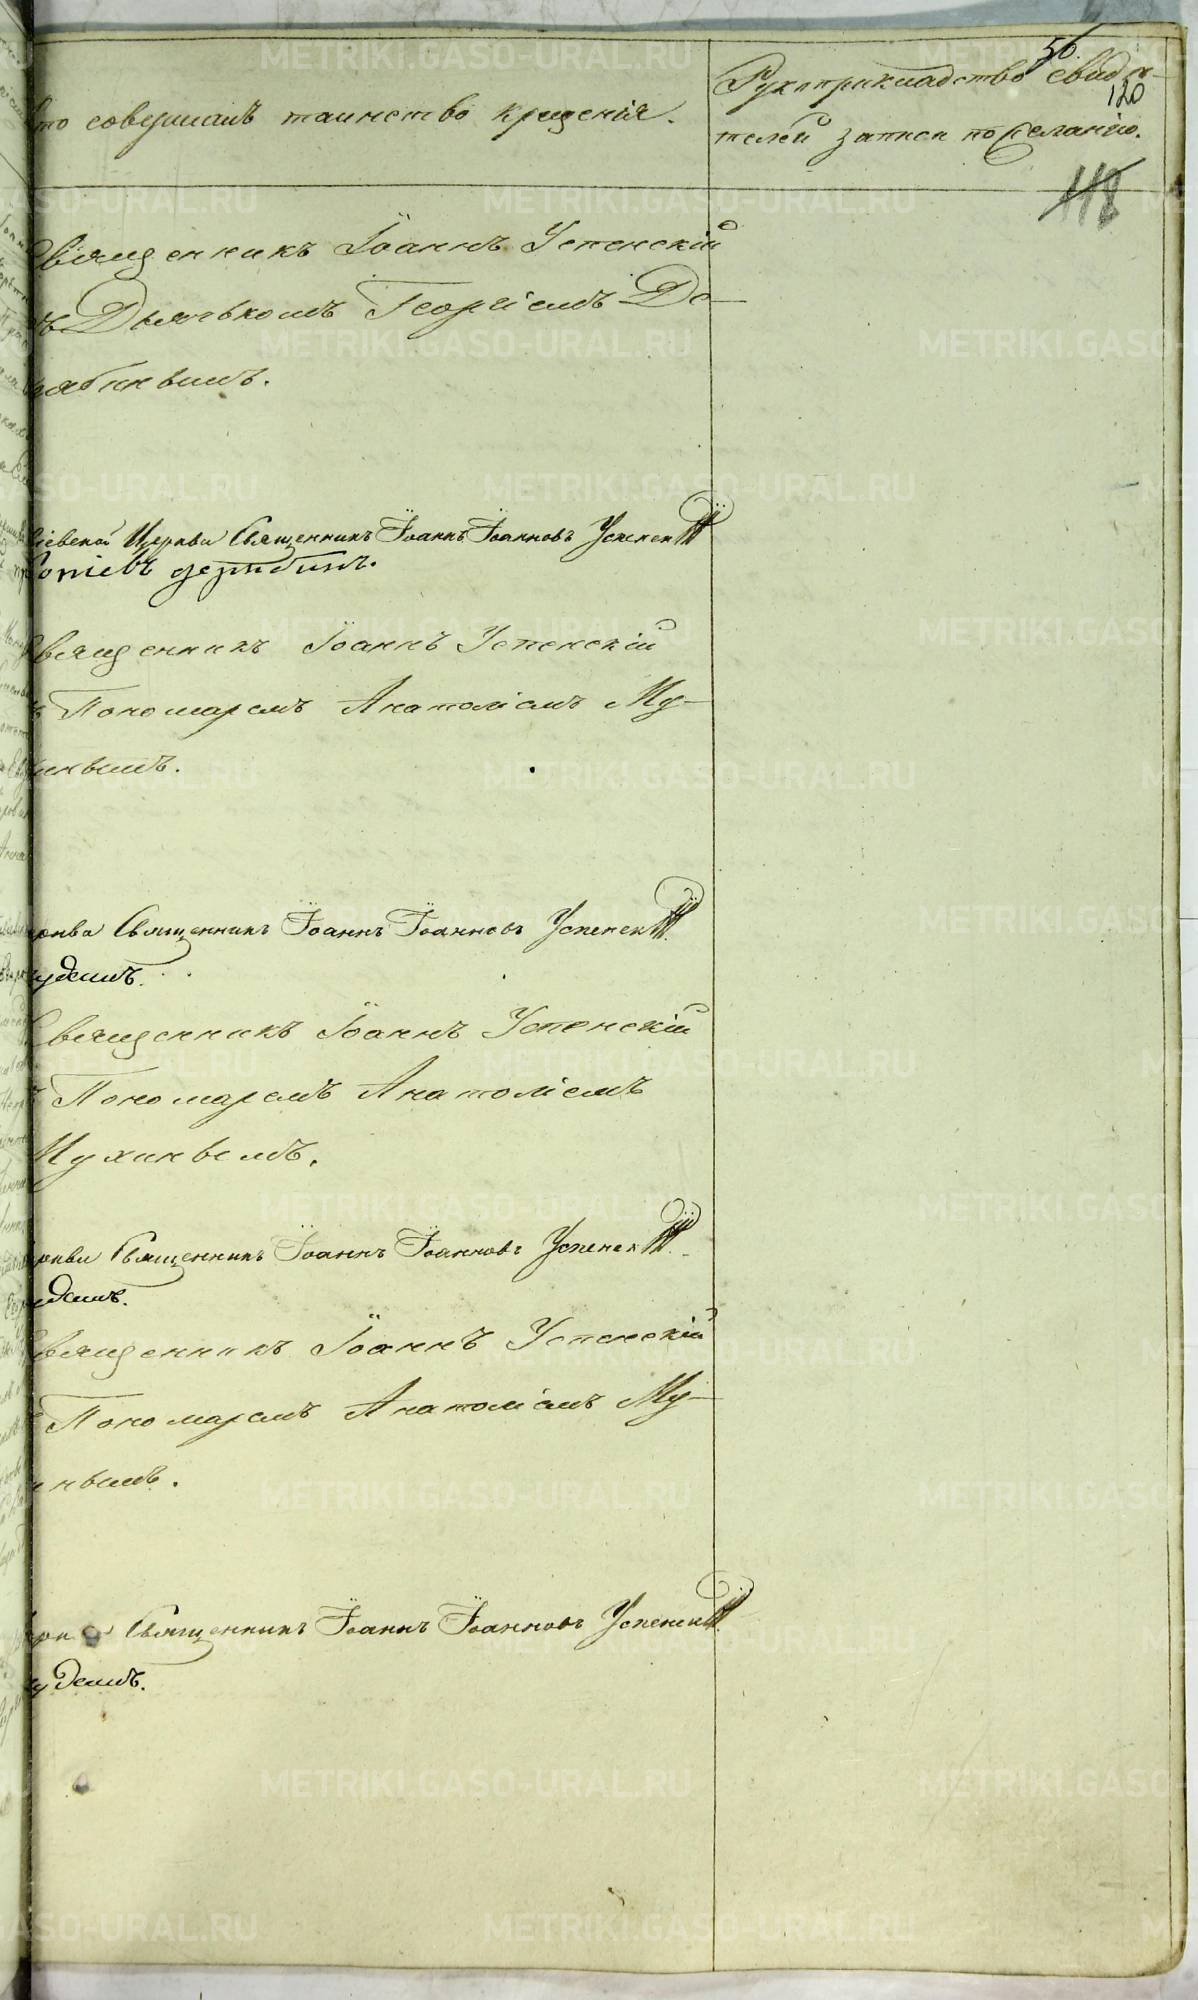 то совершалъ таинство крещенія.
Рукоприкладство свидѣ-
телей записи по желанію.
50.
120
118
Священникъ Іоаннъ Успенскій
съ Дьячькомъ Георгіемъ Де-
рябинымъ.
Церкви Священникъ Іоаннъ Іоанновъ Успенскій
Священникъ Іоаннъ Успенскій
Пономаремъ Анатоліемъ Му-
инымъ.
Священникъ Іоаннъ Іоанновъ Успенскій
Священникъ Іоаннъ Успенскій
Пономаремъ Анатоліемъ
Мухинвемъ.
Священникъ Іоаннъ Іоанновъ Успенскій
Священникъ Іоаннъ Успенскій
Пономаремъ Анатоліемъ Му-
нымъ.
Священникъ Іоаннъ Іоанновъ Успенскій
METRIKI.GASO-URAL.RU